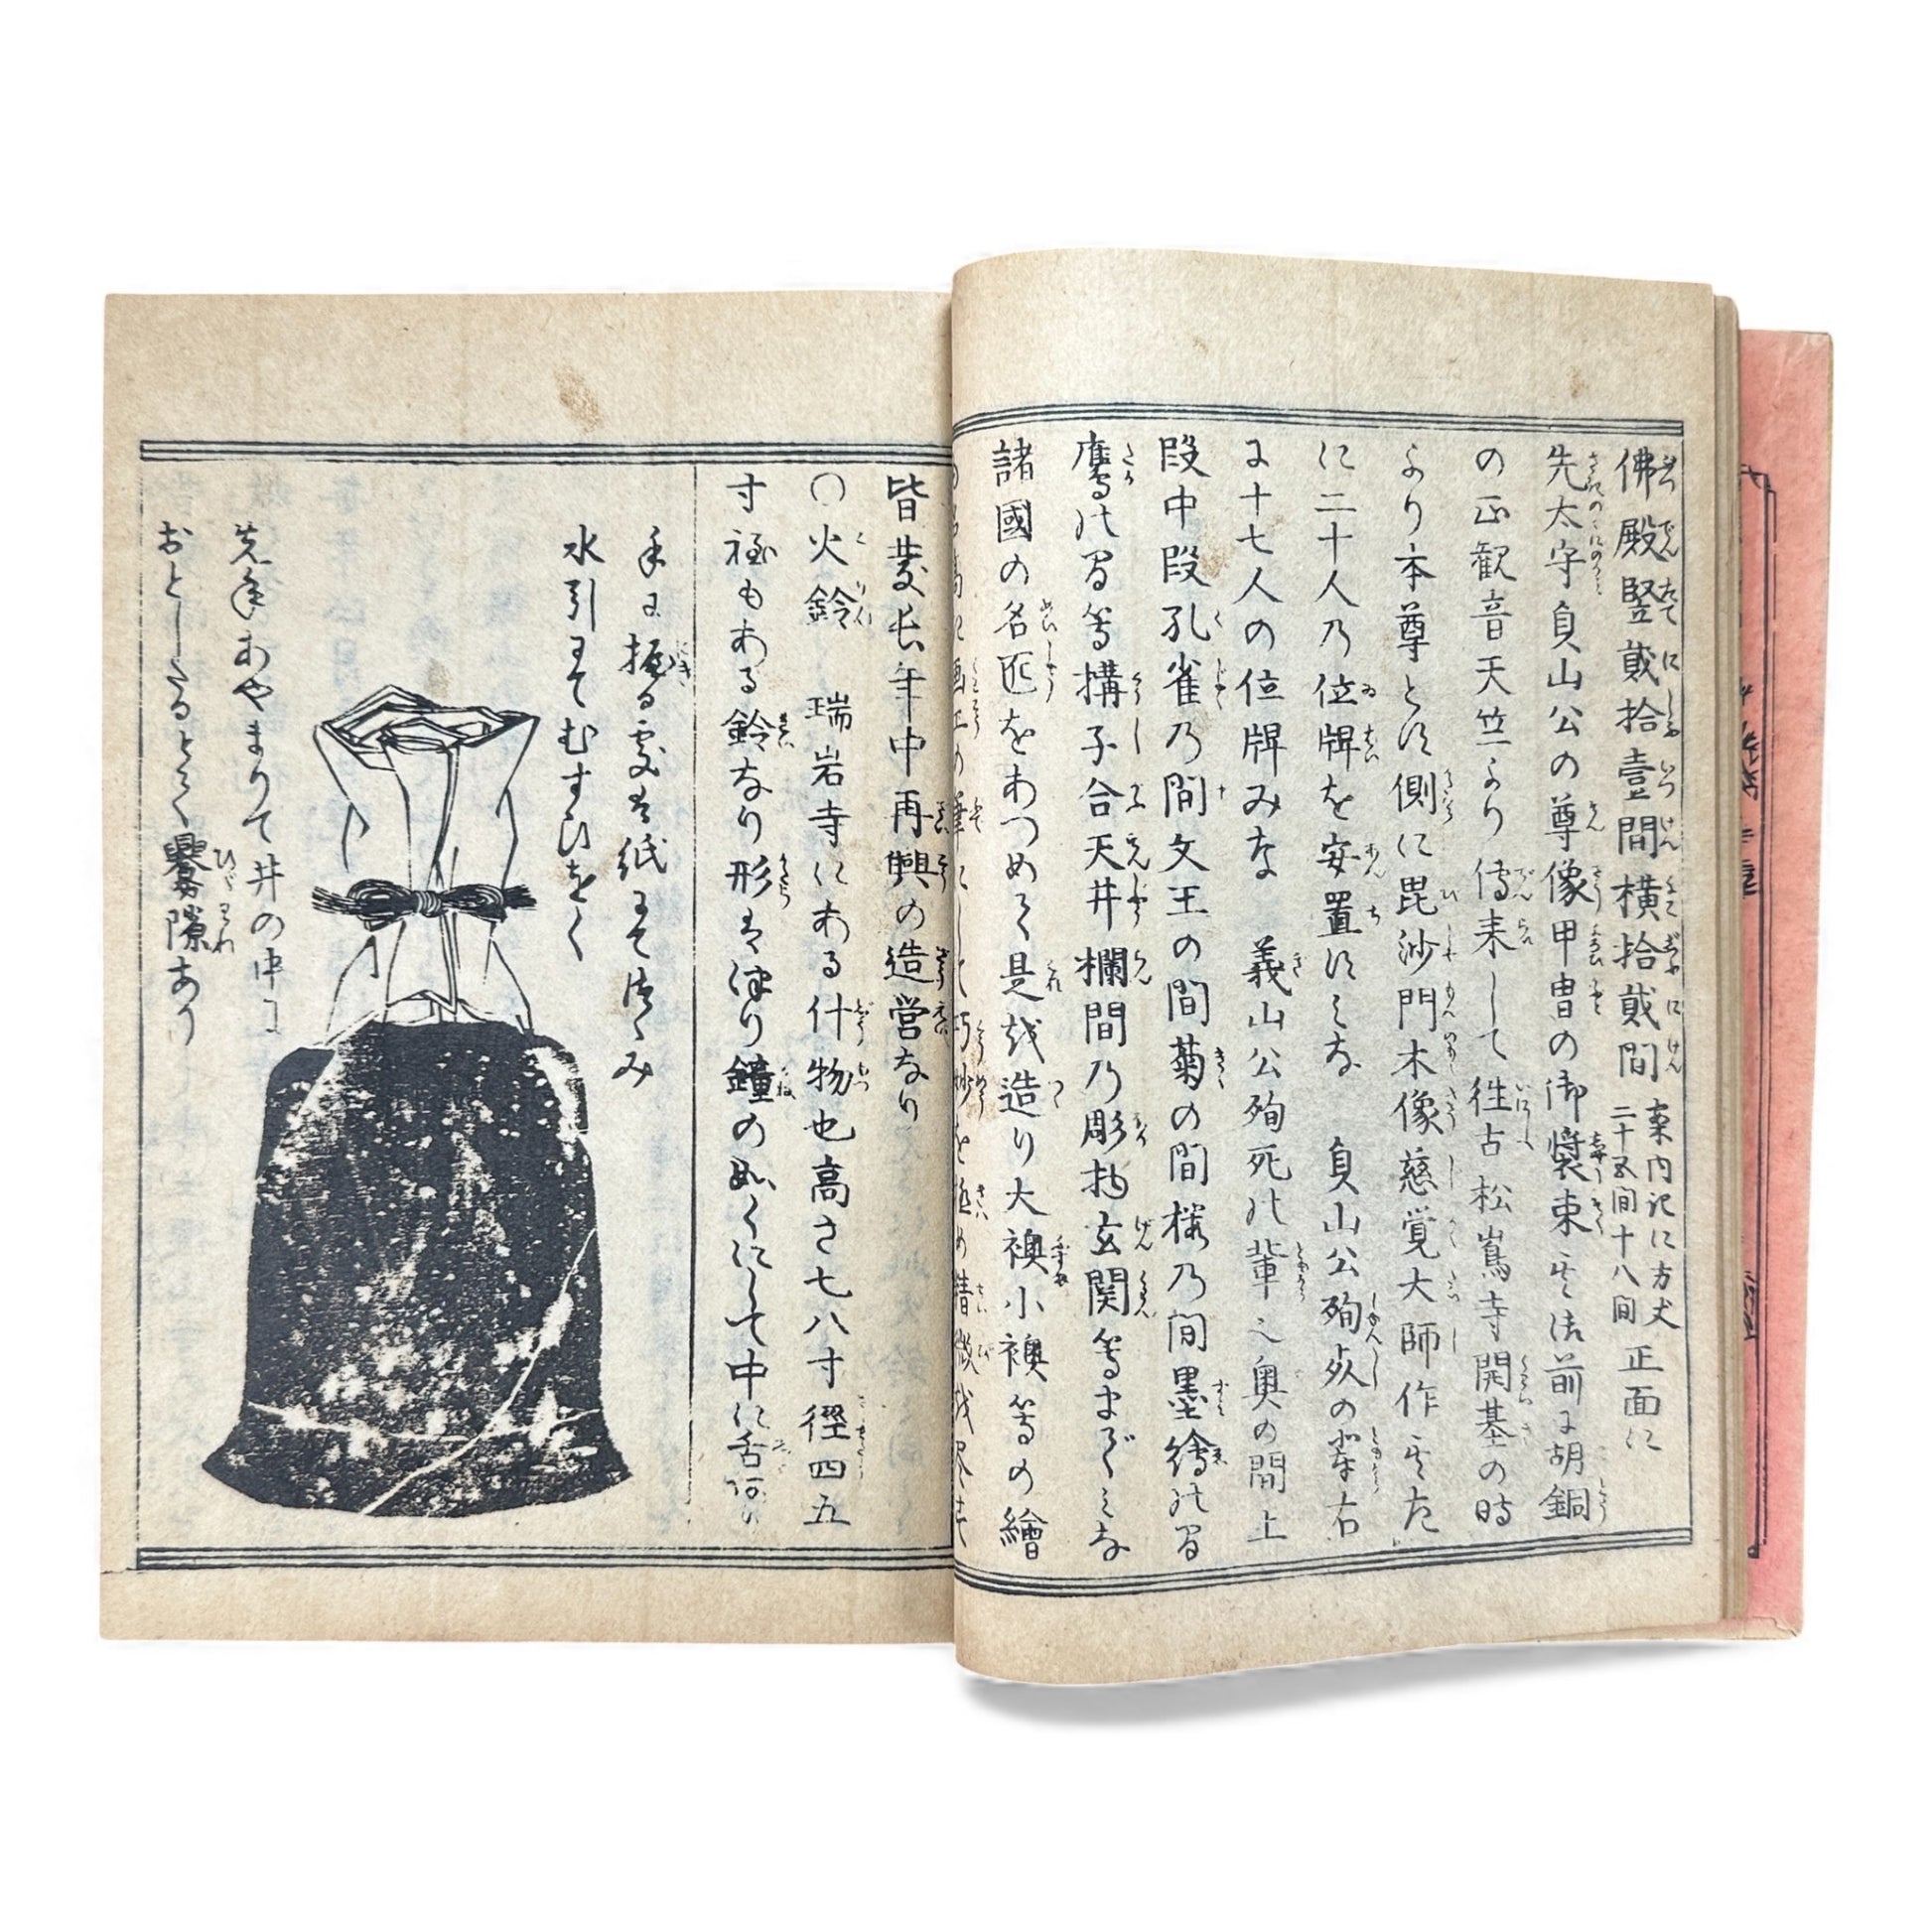 佛殿竪貮拾壹間横拾貮間 案内記に方丈二十五間十八間 正面に
先太守貞山公の尊像甲冑の御装束其法前に胡銅
の正観音天竺より傳来して徃古松嶌寺開基の時
より本尊とす側に毘沙門木像慈覚大師作其左
に二十人乃位牌を安置すみな 貞山公殉死の輩右
に十七人の位牌みな 義山公殉死の輩之奥の間上
段中段孔雀乃間文王の間菊の間桜乃間墨繪の間
鷹の間等構子合天井欄間乃彫物玄関等までみな
諸國の名匠をあつめて是を造り大襖小襖等の繪
画工の筆にして巧妙を極め精微を尽せ
皆慶長年中再興の造営なり
○火鈴 瑞岩寺にある什物也高さ七八寸徑四五
寸程もある鈴なり形は津り鐘の如くにして中に舌
手に握る處は紙にて津ゝみ
水引にてむすひをく
先年あやまりて井の中に
おとしたるとて釁隙あり